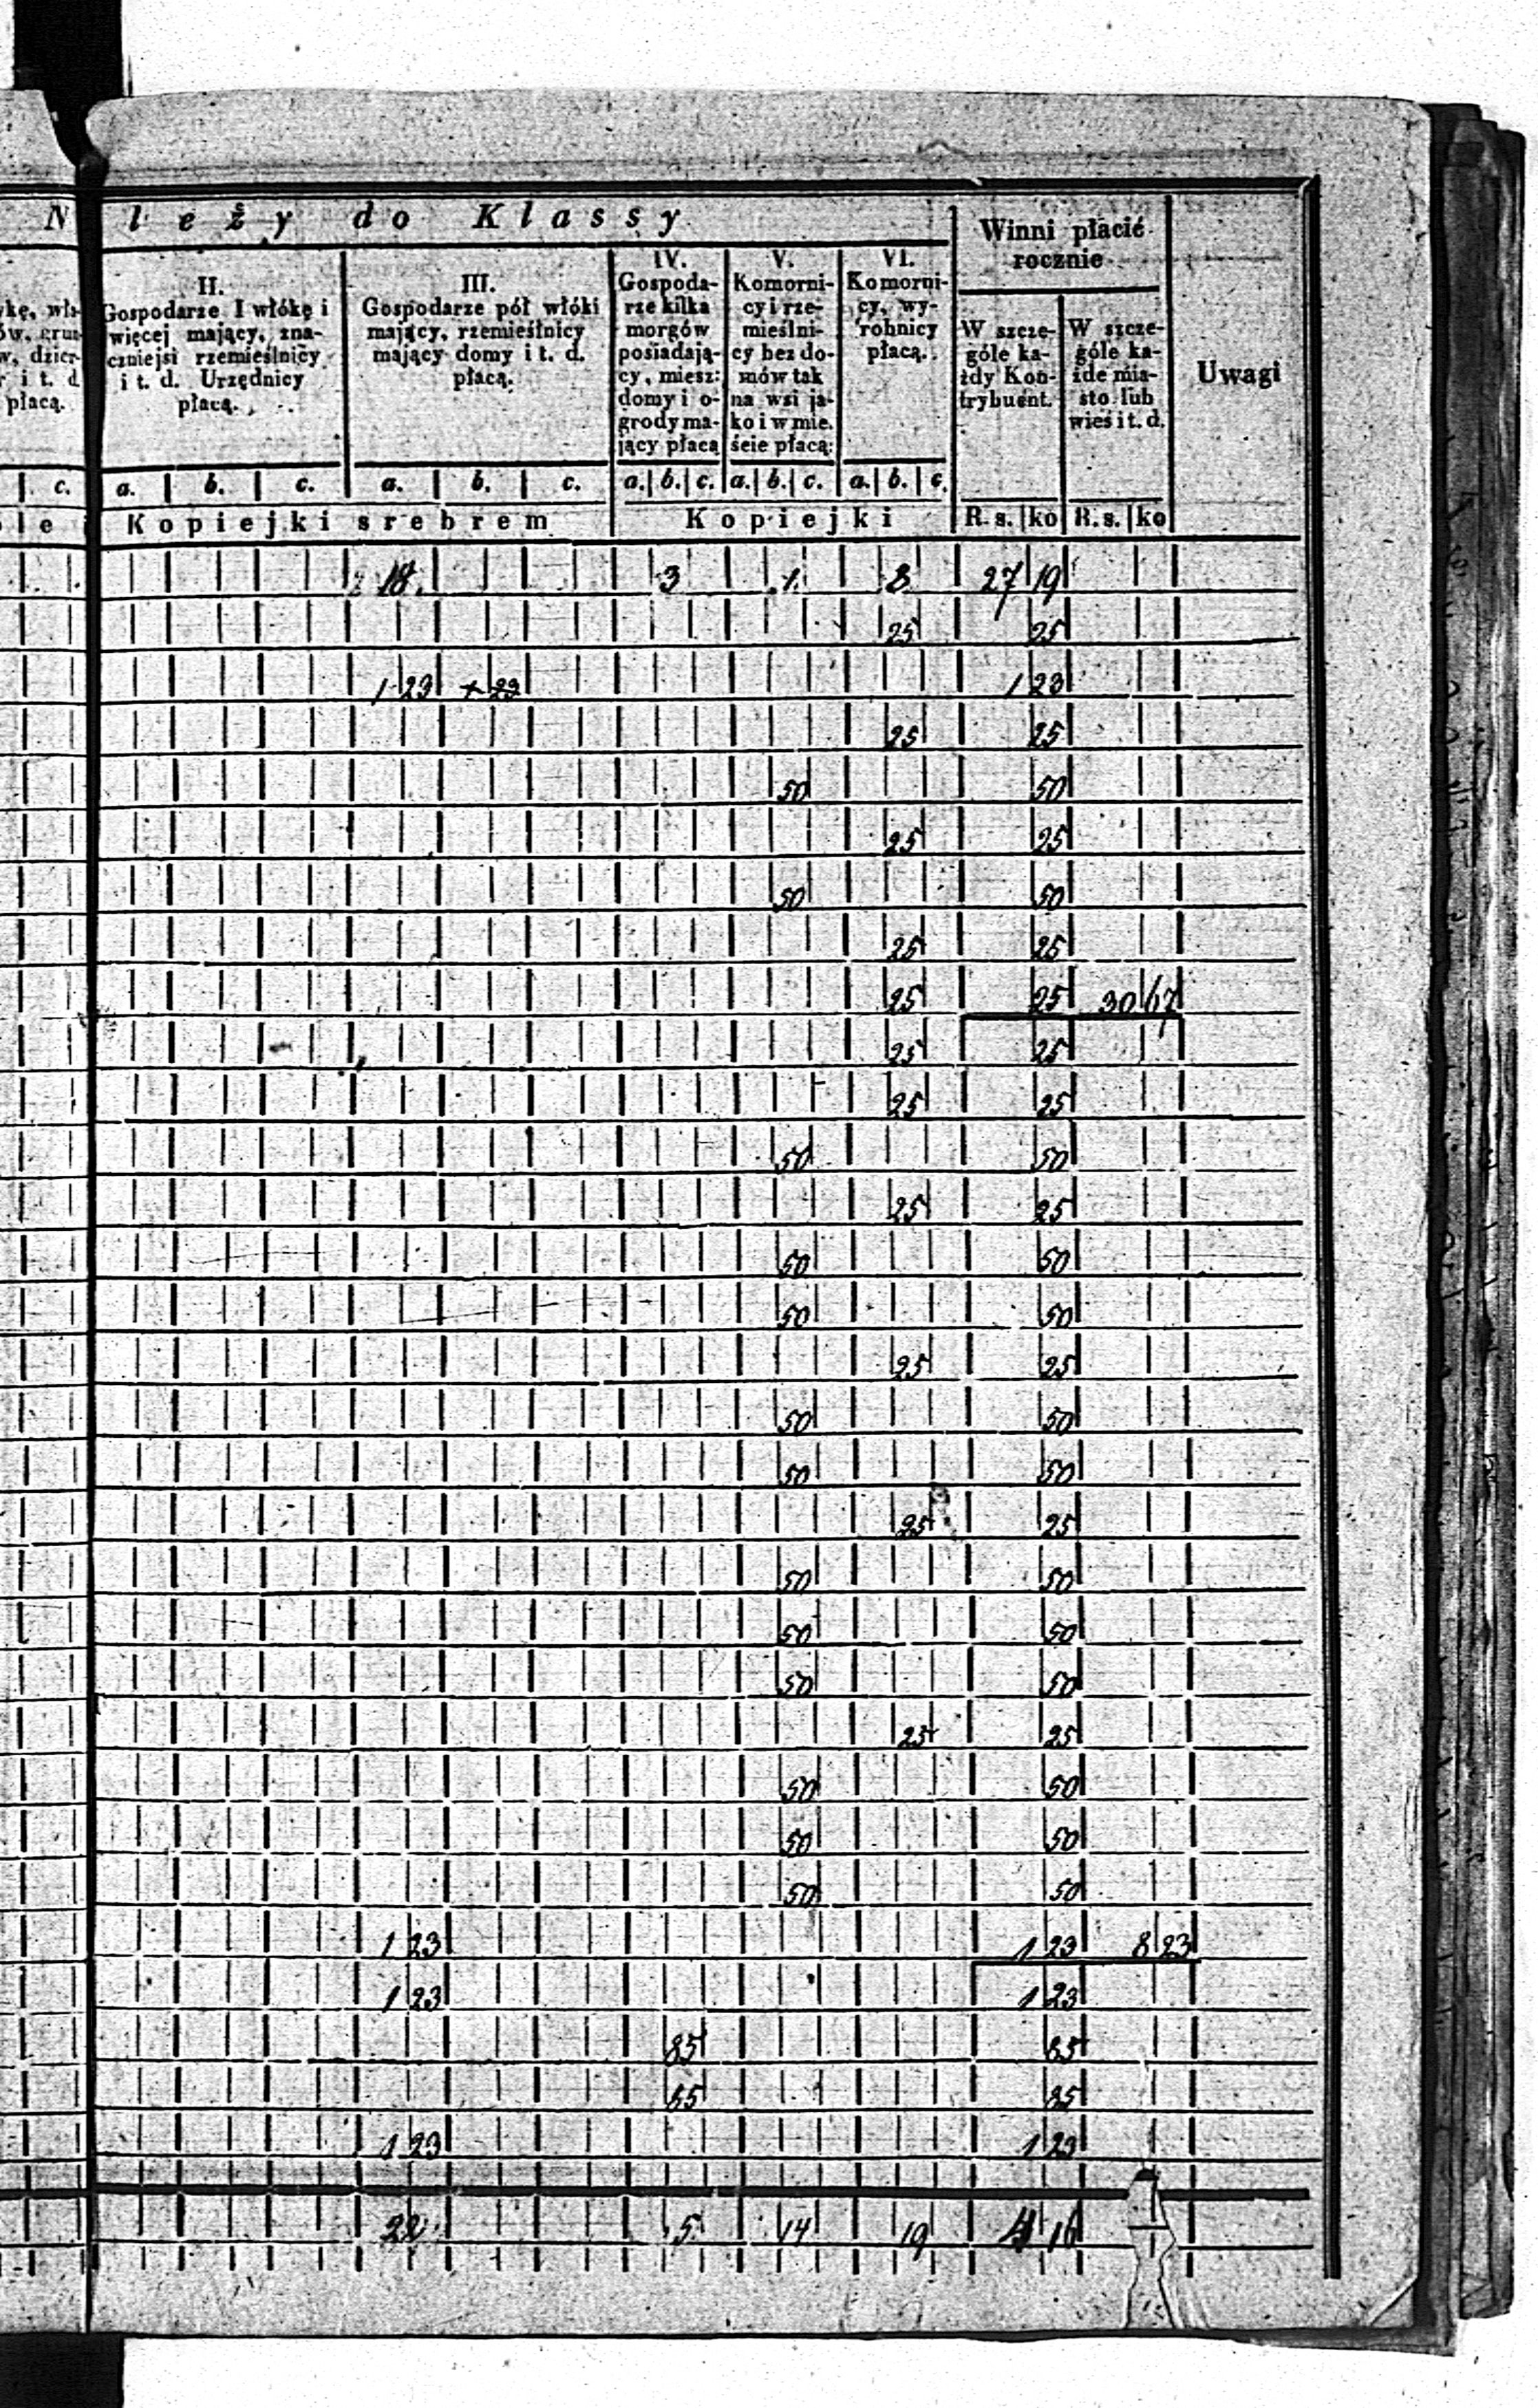 N leży do Klassy
Winni płacić rocznie
Uwagi
II. Gospodarze I włókę i więcej mający, znaczniejsi rzemieślnicy i t. d. Urzędnicy płacą.
III. Gospodarze pół włóki mający, rzemieślnicy mający domy i t. d. płacą.
IV. Gospodarze kilka morgów posiadający, miesz: domy i ogrody mający płacą
V. Komornicy i rzemieślnicy bez domów tak na wsi jako i w mieście płacą:
VI. Komornicy, wyrobnicy płacą.
W szczególe każdy Kontrybuent.
W szczególe każde miasto lub wieś i t. d.
płacą.
c. a. b. c. a. b. c. a. b. c. a. b. c. a. b. c.
Kopiejki srebrem Kopiejki R. s. ko R. s. ko
18 3 1 8 27 19
25 25
1 23 1 23 1 23
25 25
50 50
25 25
50 50
25 25
25 25 30 67
25 25
25 25
50 50
25 25
50 50
50 50
25 25
50 50
50 50
25 25
50 50
50 50
50 50
25 25
50 50
50 50
50 50
1 23 1 23 8 23
1 23 1 23
85 85
85 85
1 23 1 23
22 5 14 19 16